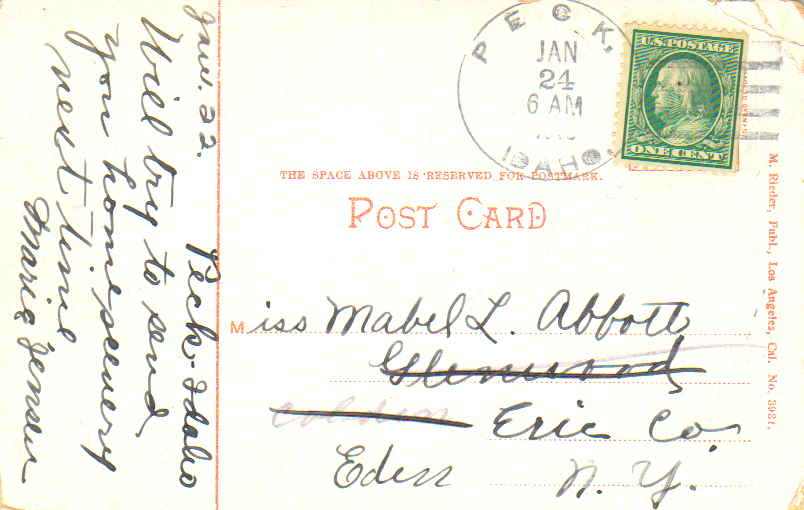 Jan. 22.
Peck-Idaho
Will try to send
you home scenery
next time
Marie Jensen
PECK,
JAN
24
6 AM
IDAHO.
U.S. POSTAGE
ONE CENT
THE SPACE ABOVE IS RESERVED FOR POSTMARK.
POST CARD
Miss Mabel L. Abbott
Glenwood
Colden Erie Co.
Eden N. Y.
M. Rieder, Publ., Los Angeles, Cal. No. 3931.